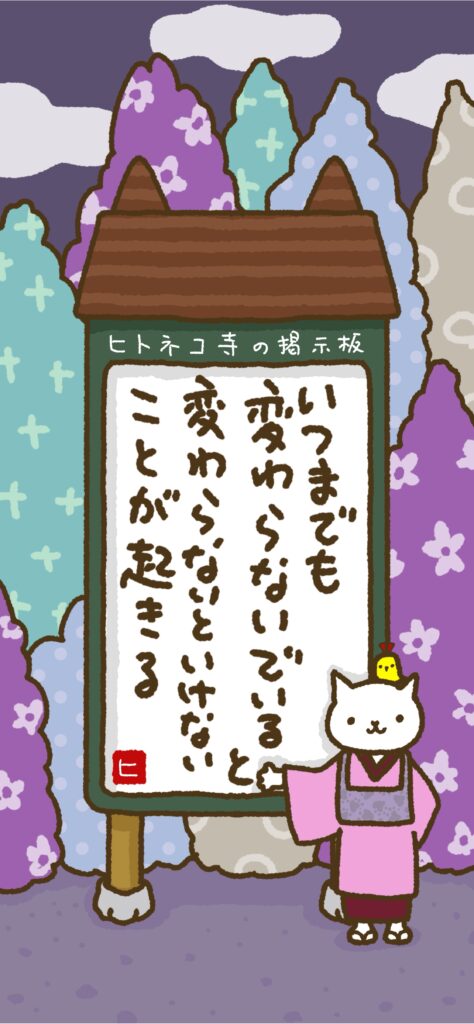 ヒトネコ寺の掲示板
いつまでも
変わらないでいると
変わらないといけない
ことが起きる
ヒ